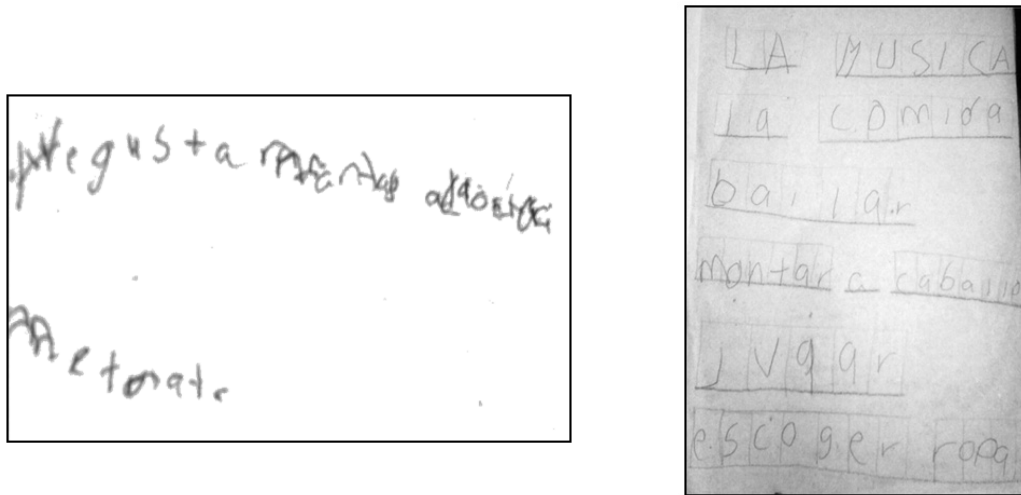 Me gusta montar a
LA MUSICA
la comida
bailar
montar a caballo
jugar
escoger ropa